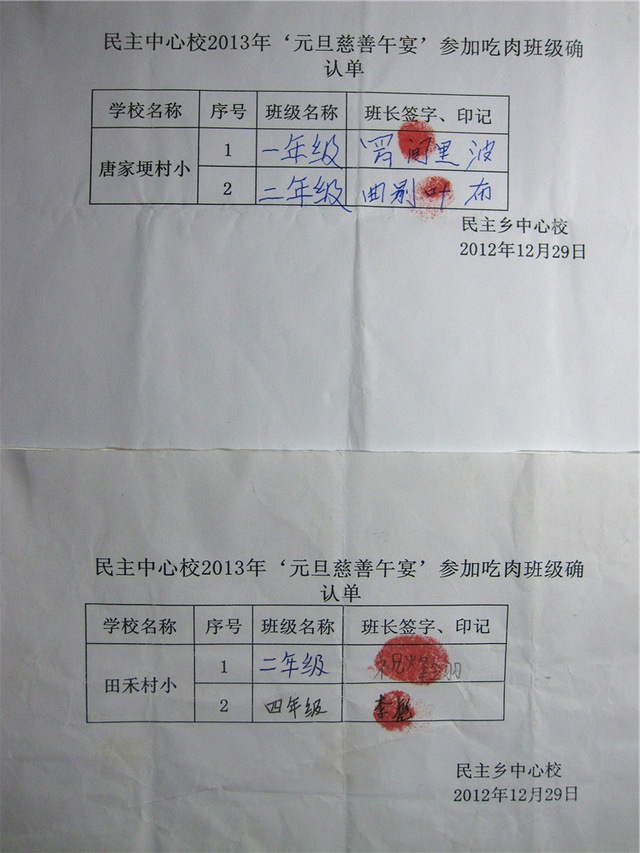 民主中心校2013年‘元旦慈善午宴’参加吃肉班级确
认单
学校名称 序号 班级名称 班长签字、印记
唐家埂村小 1 一年级 里波
2 二年级 曲别叶布
民主乡中心校
2012年12月29日
民主中心校2013年‘元旦慈善午宴’参加吃肉班级确
认单
学校名称 序号 班级名称 班长签字、印记
田禾村小 1 二年级
2 四年级 李
民主乡中心校
2012年12月29日